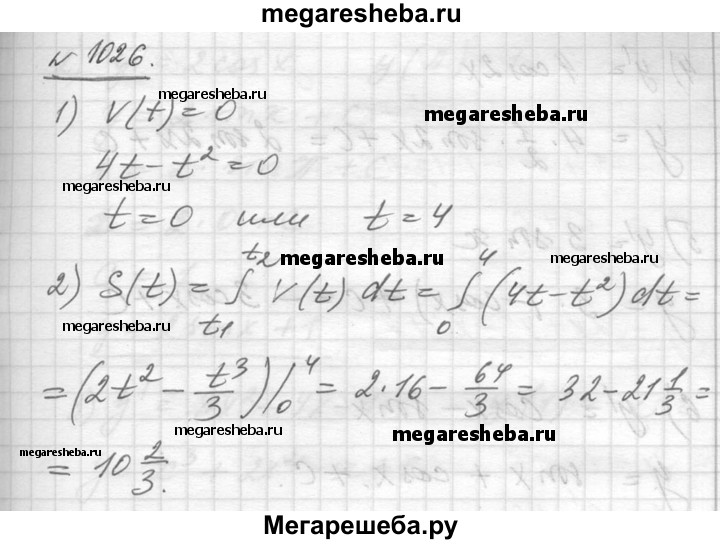 megaresheba.ru
№ 1026.
megaresheba.ru
1) V(t)=0
megaresheba.ru
4t-t²=0
megaresheba.ru
t=0 или t=4
megaresheba.ru
megaresheba.ru
2) S(t) = ∫_{t1}^{t2} V(t) dt = ∫_0^4 (4t-t²)dt =
megaresheba.ru
megaresheba.ru
= (2t² - t³/3)|_0^4 = 2·16 - 64/3 = 32-21 1/3 =
megaresheba.ru
megaresheba.ru
megaresheba.ru
= 10 2/3.
Мегарешеба.ру